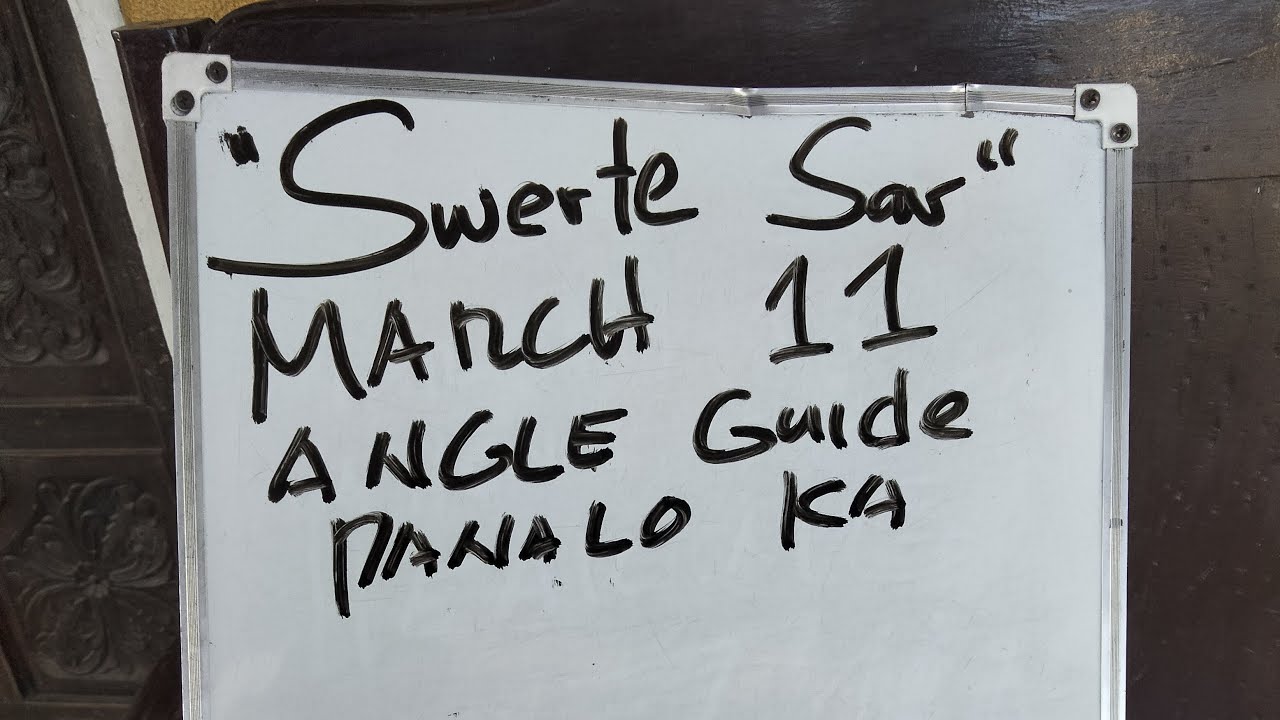 "Swerte Sav"
MARCH 11
ANGLE Guide
PANALO KA